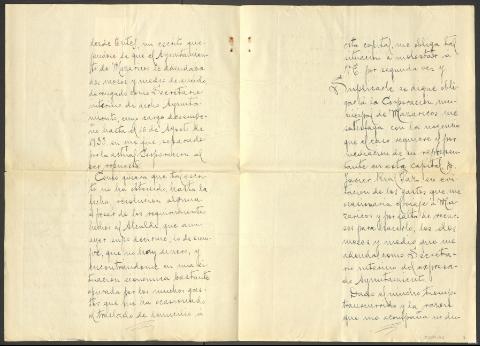 desde Corteg, un escrito que-
jandose de que el Ayuntamien-
to de Mazaricos le adeudaba
dos meses y medio de sueldo
devengado como Secretario
interino de dicho Ayunta-
miento, cuyo cargo desempe-
ñó hasta el 16 de Agosto de
1933, en que fue separado
por la actual Corporación al
ser repuesta.
Como quiera que tal escri-
to no ha obtenido, hasta la
fecha, resolución alguna
a pesar de los requerimientos
hechos al Alcalde que aun-
que supo decirme, lo de siem-
pre, que no hay dinero, y
encontrandome en una si-
tuación economica bastante
apurada por los muchos gas-
tos que me ha ocasionado
el traslado de domicilio a
esta capital, me obliga tal
situación a molestar a
V.E. por segunda vez y
Suplicarle se digne obli-
gar a la Corporación mu-
nicipal de Mazaricos me
satisfaga con la urgencia
que el caso requiere y por
mediación de su represen-
tante en esta Capital
Javier Paz, en evi-
tación de los gastos que me
ocasionaría el viaje a Ma-
zaricos y por falta de recur-
sos para hacerlo, los dos
meses y medio que me
adeudan como Secreta-
rio interino del expresa-
do Ayuntamiento.
Dado el mucho tiempo
transcurrido y la razón
que me acompaña no du-